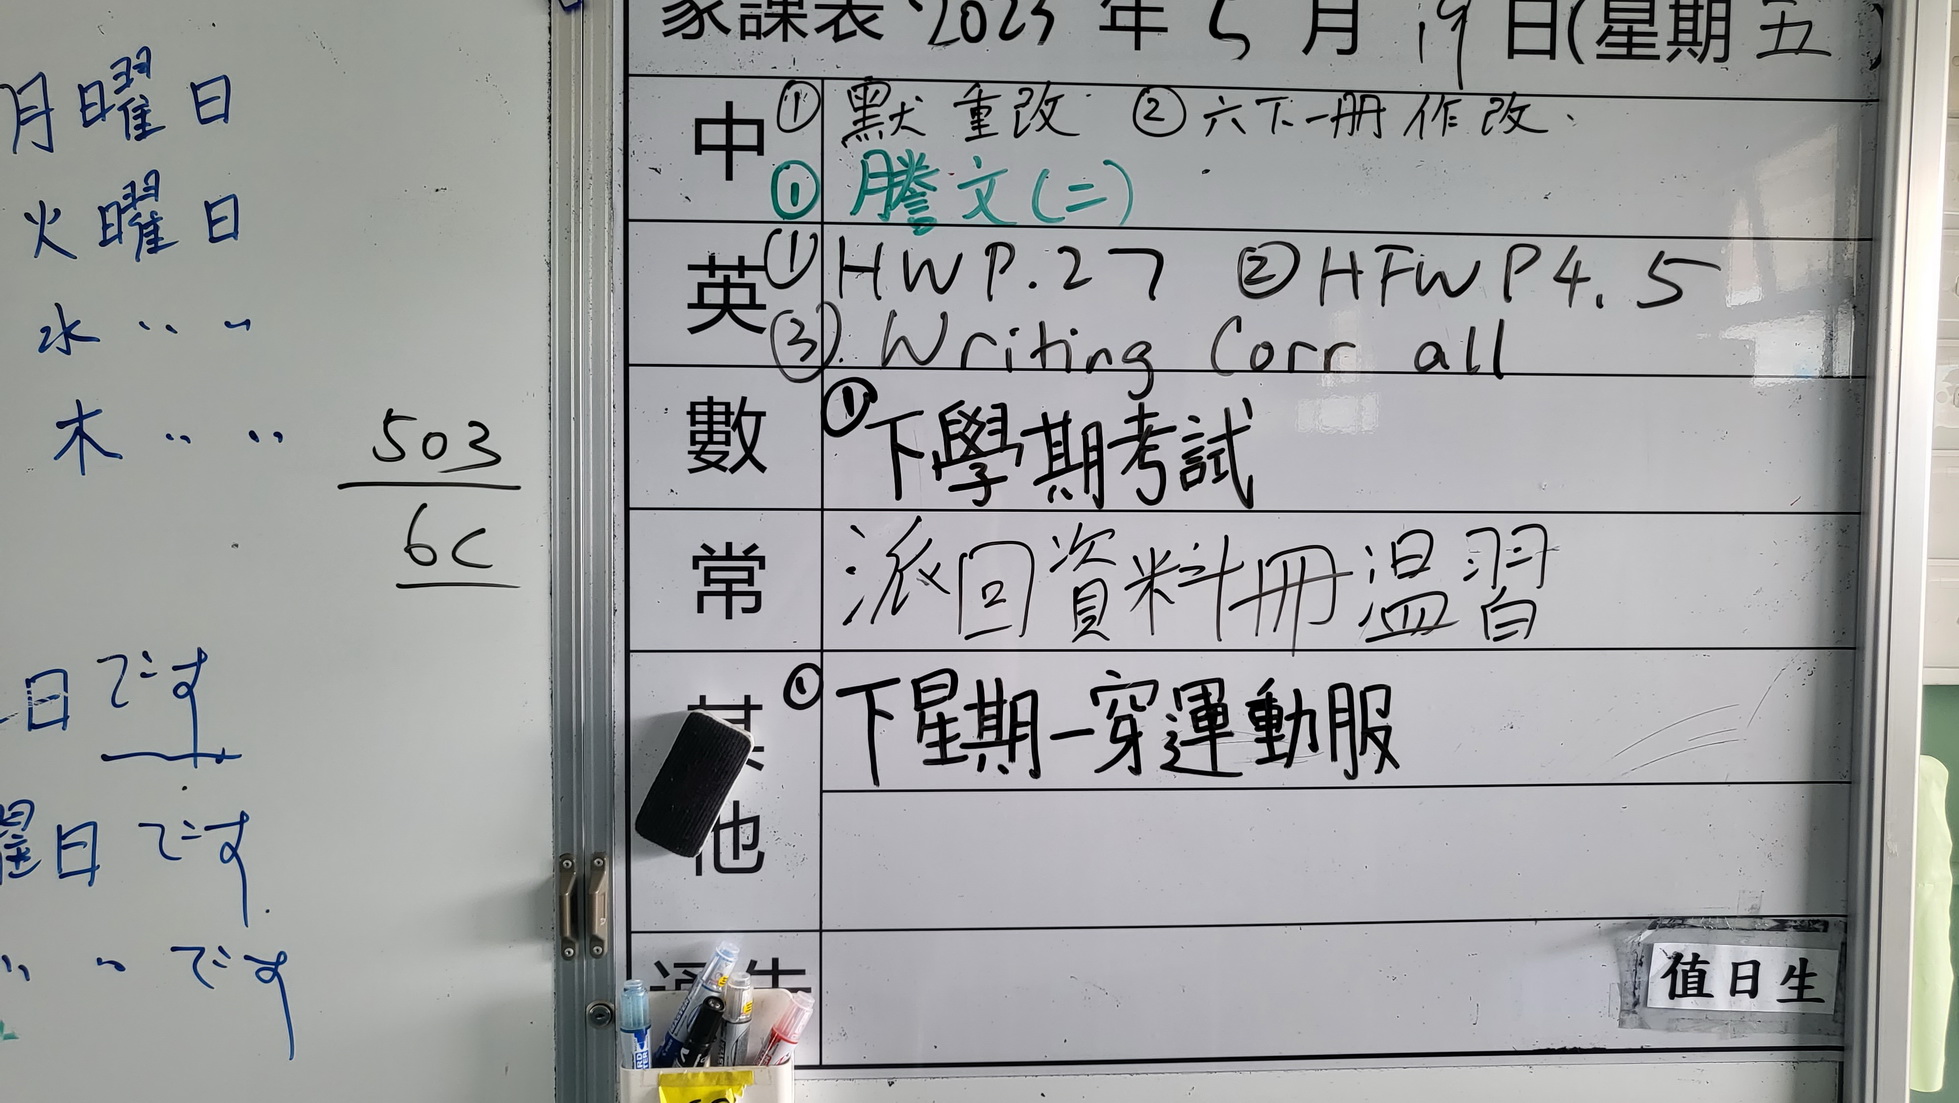 月曜日
火曜日
水 〃 〃
木 〃 〃
503
6C
日です
曜日です
〃 〃 です
家課表 2023年5月19日(星期五)
中
① 默重改 ② 六下一冊作改
① 謄文(二)
英
① HW P.27 ② HFW P4.5
③ Writing Corr all
數
① 下學期考試
常
派回資料冊溫習
其他
① 下星期一穿運動服
通告
值日生